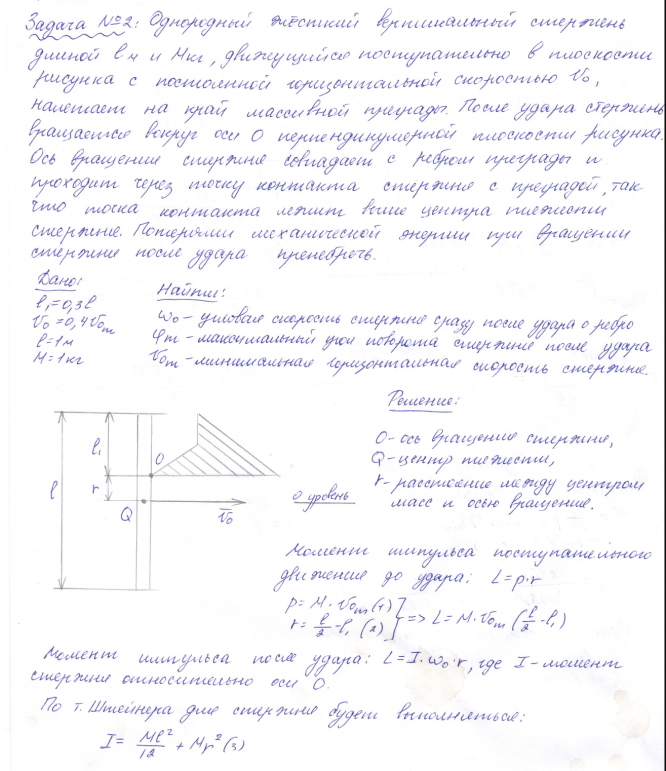 Задача №2: Однородный жёсткий вертикальный стержень
длиной l м и M кг, движущийся поступательно в плоскости
рисунка с постоянной горизонтальной скоростью V₀,
налетает на край массивной преграды. После удара стержень
вращается вокруг оси O перпендикулярной плоскости рисунка.
Ось вращения стержня совпадает с ребром преграды и
проходит через точку контакта стержня с преградой, так
что точка контакта лежит выше центра тяжести
стержня. Потерями механической энергии при вращении
стержня после удара пренебречь.
Дано:
l₁=0,3l
V₀=0,4V₀ₘ
l=1м
M=1кг
Найти:
ω₀ – угловая скорость стержня сразу после удара о ребро
φm – максимальный угол поворота стержня после удара
V₀m – минимальная горизонтальная скорость стержня.
Решение:
O – ось вращения стержня,
Q – центр тяжести,
r – расстояние между центром
масс и осью вращения.
l
l₁
r
O
Q
V̄₀
0 уровень
Момент импульса поступательного
движения до удара: L=p·r
p=M·V₀m (1)
r=l/2-l₁ (2)
} => L=M·V₀m (l/2-l₁)
Момент импульса после удара: L=I·ω₀·r, где I – момент
стержня относительно оси O.
По т. Штейнера для стержня будет выполняться:
I= Ml²/12 + Mr² (3)